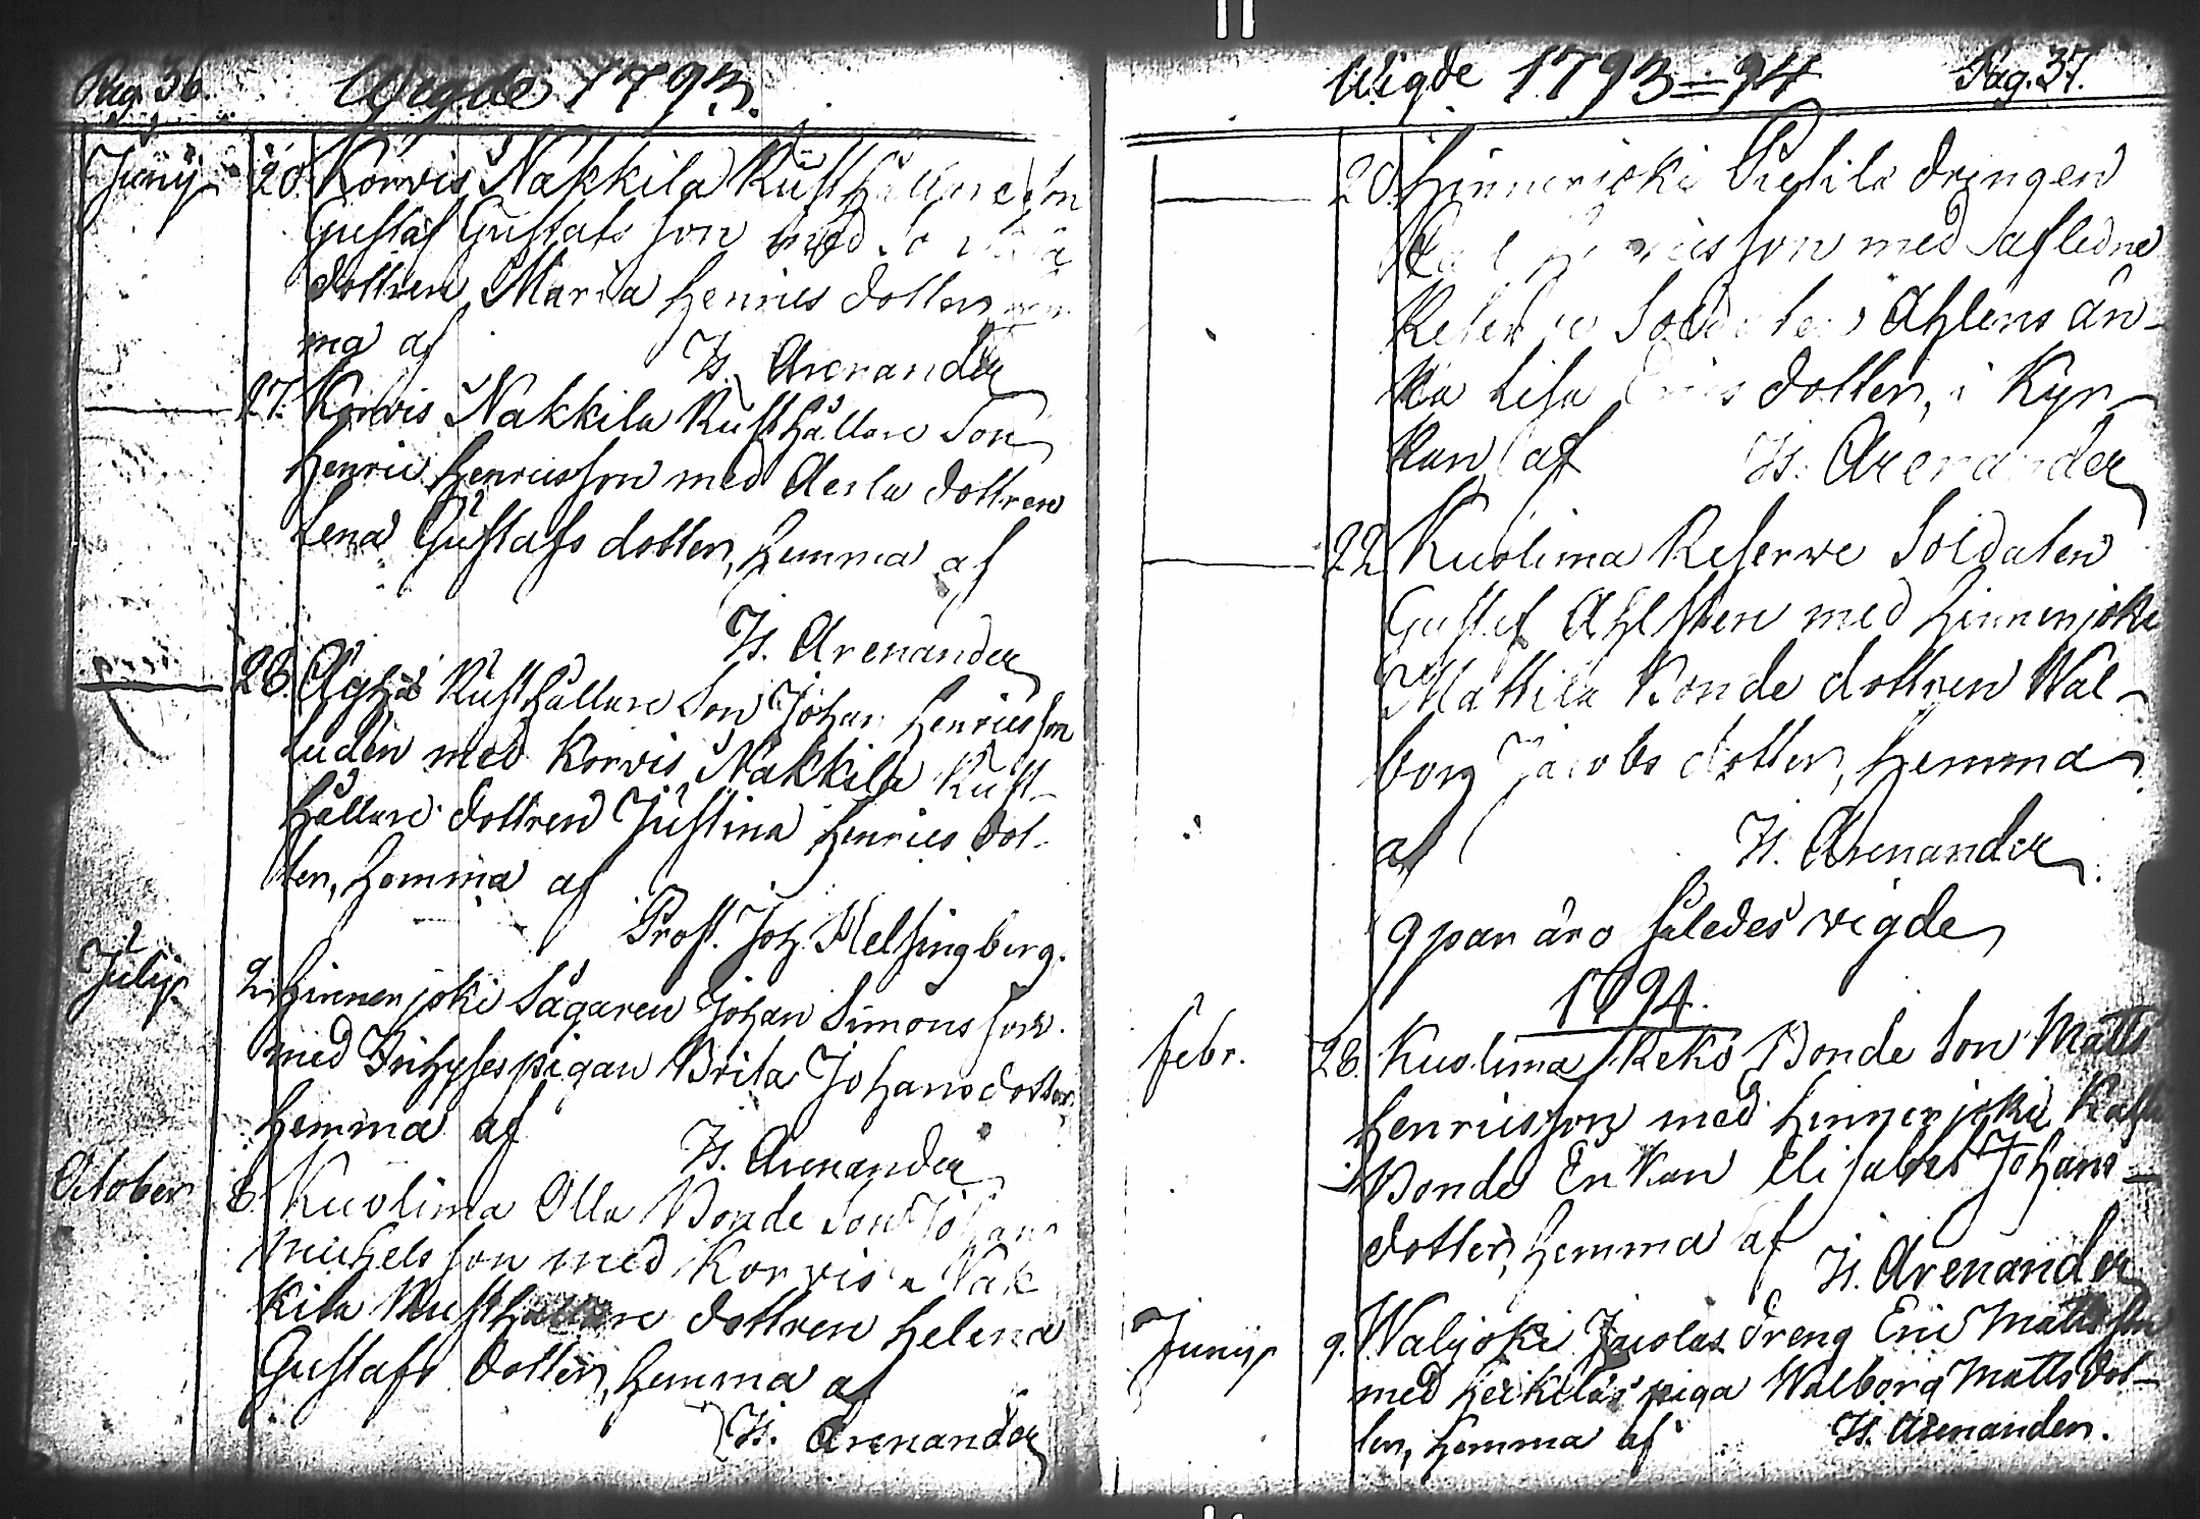 Pag. 36. Wigde 1793.
Junij 20. Korvis Nakkila Rusthållare Son
Gustaf Gustafsson med
dottren Maria Henrics dotter
ma af Is. Arenander
27. Korvis Nakkila Rusthållare Son
Henric Henricsson med Aerla dottren
Lena Gustafs dotter, hemma af
Is. Arenander
28. Äyhö Rusthållare Son Johan Henricsson
med Korvis Nakkila Rust-
hållare dottren Justina Henrics dot-
ter, hemma af
Prost. Joh. Helsingberg.
Julij 2. Hinnerjoki Sågaren Johan Simonsson
med pigan Brita Johansdotter
hemma af
Is. Arenander
October 8. Kuolima Olla Bonde Son Johan
Michelsson med Korvis Nak
kila Rusthållare dottren Helena
Gustafs dotter, hemma af
Is. Arenander
Wigde 1793=94 Pag. 37.
20. Hinnerjoki drengen
med afledne
Reserve Soldatens Ahlens än-
ka Lisa Erics dotter, i Kyr-
kan af Is. Arenander
22 Kuolima Reserve Soldaten
Gustaf Ahlsten med Hinnerjoki
Mattila Bonde dottren Wal-
borg Jacobs dotter, hemma
af Is. Arenander
9 par äro således vigde
1794.
Febr. 28. Kuolima Keko Bonde Son Matts
Henricsson med Hinnerjoki
Bonde Enkan Elisabet Johans-
dotter, hemma af
Is. Arenander
Junij 9. Walijoki Juolas dreng Eric Mattsson
med Heikilas piga Walborg Matts dot-
ter, hemma af Is. Arenander.